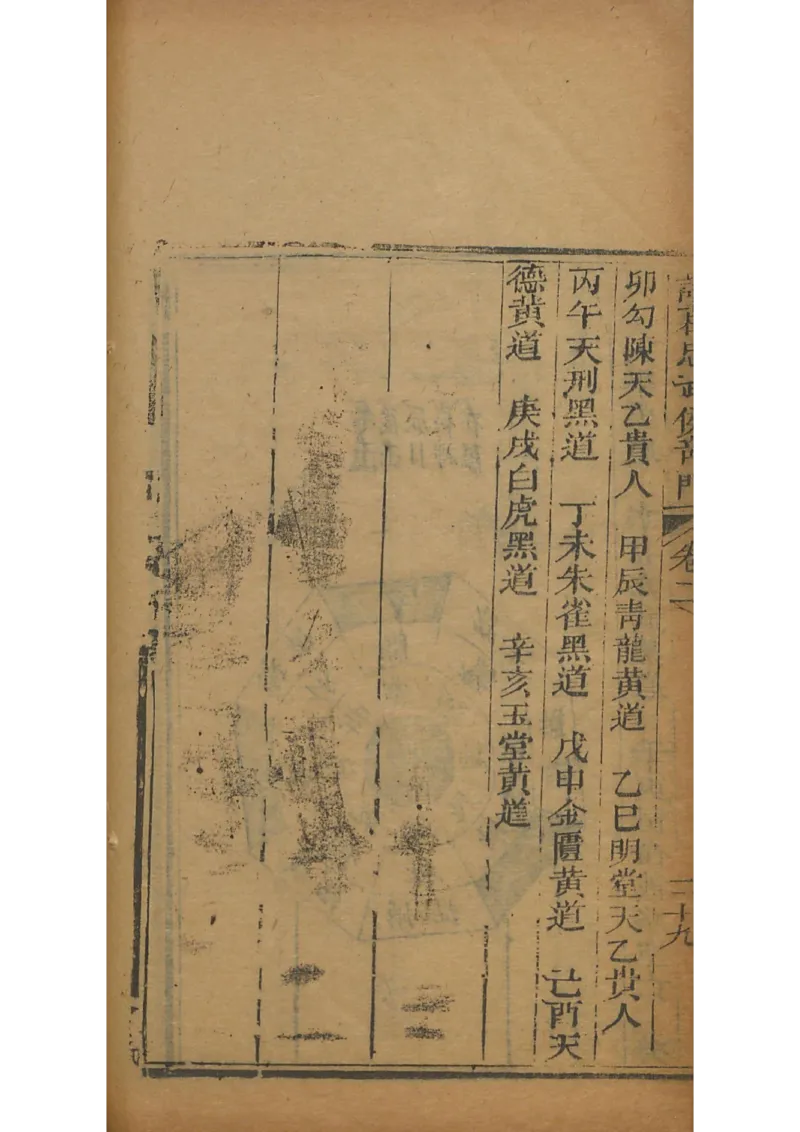 諸葛忠武侯奇門 卷二 三十九
卯勾陳天乙貴人 甲辰靑龍黃道 乙巳明堂天乙貴人
丙午天刑黑道 丁未朱雀黑道 戊申金匱黃道 己酉天
德黃道 庚戌白虎黑道 辛亥玉堂黃道